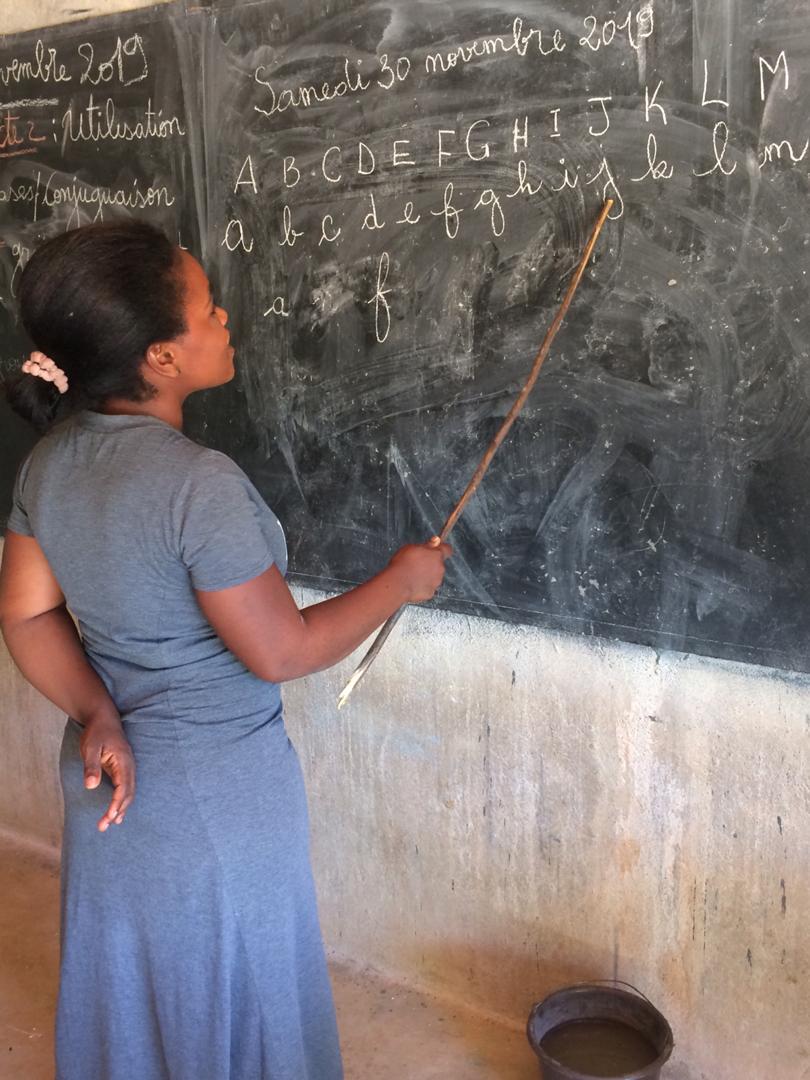 vembre 2019
: Utilisation
ases/Conjuguaison
Samedi 30 novembre 2019
A B C D E F G H I J K L M
a b c d e f g h i j k l m
a f